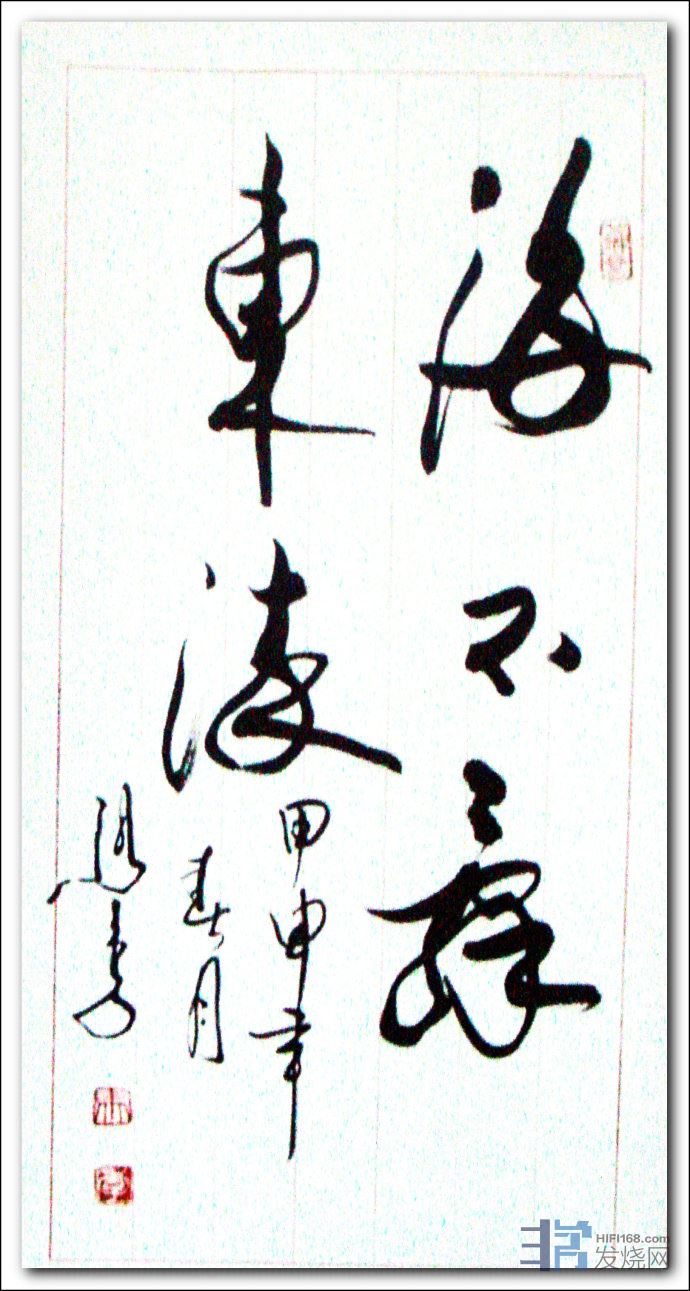 海不辭
東流
甲申年
春月
HIFI168.com
发烧网